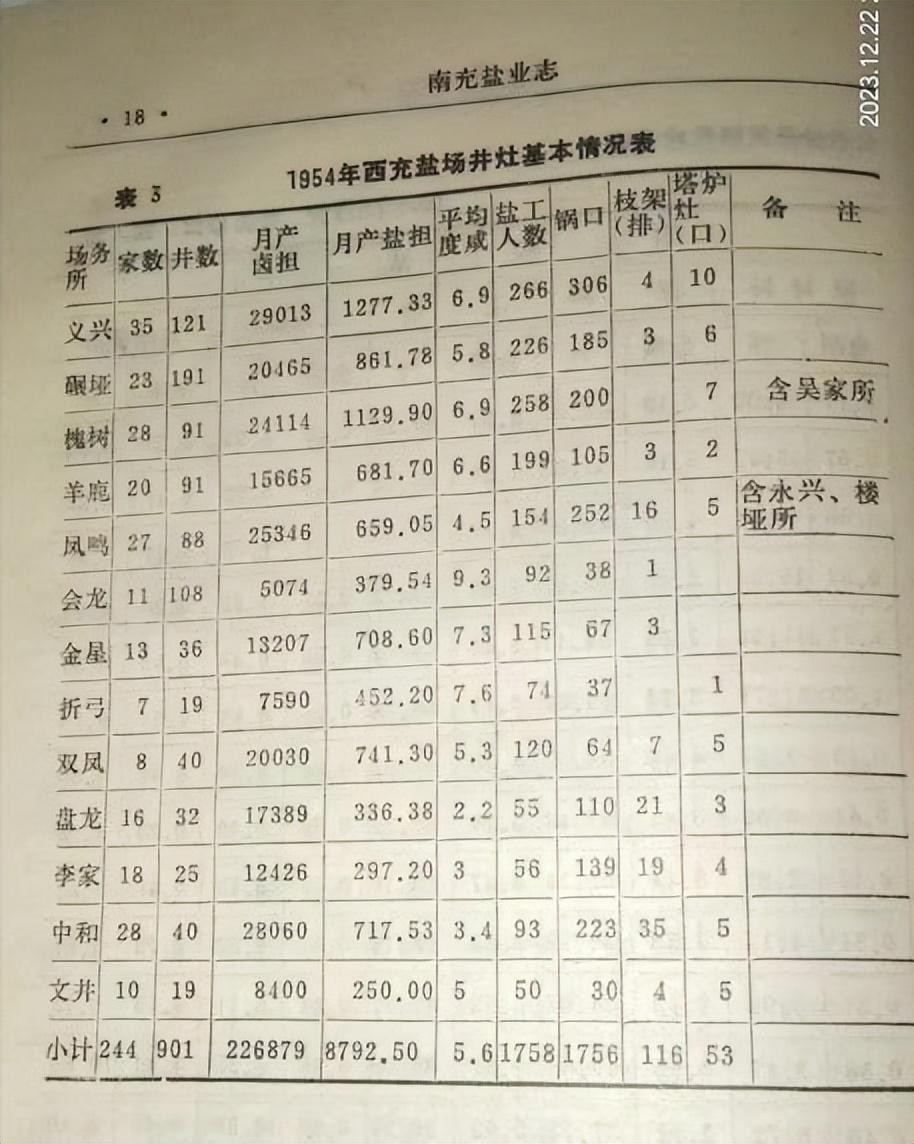 2023.12.22
南充盐业志
· 18 ·
1954年西充盐场井灶基本情况表
表 3
场务所 家数 井数 月产卤担 月产盐担 平均度咸 盐工人数 锅口 枝架(排) 塔炉灶(口) 备 注
义兴 35 121 29013 1277.33 6.9 266 306 4 10
碾垭 23 191 20465 861.78 5.8 226 185 3 6
槐树 28 91 24114 1129.90 6.9 258 200 7 含吴家所
羊鹿 20 91 15665 681.70 6.6 199 105 3 2
凤鸣 27 88 25346 659.05 4.5 154 252 16 5 含永兴、楼垭所
会龙 11 108 5074 379.54 9.3 92 38 1
金星 13 36 13207 708.60 7.3 115 67 3
折弓 7 19 7590 452.20 7.6 74 37 1
双凤 8 40 20030 741.30 5.3 120 64 7 5
盘龙 16 32 17389 336.38 2.2 55 110 21 3
李家 18 25 12426 297.20 3 56 139 19 4
中和 28 40 28060 717.53 3.4 93 223 35 5
文井 10 19 8400 250.00 5 50 30 4 5
小计 244 901 226879 8792.50 5.6 1758 1756 116 53